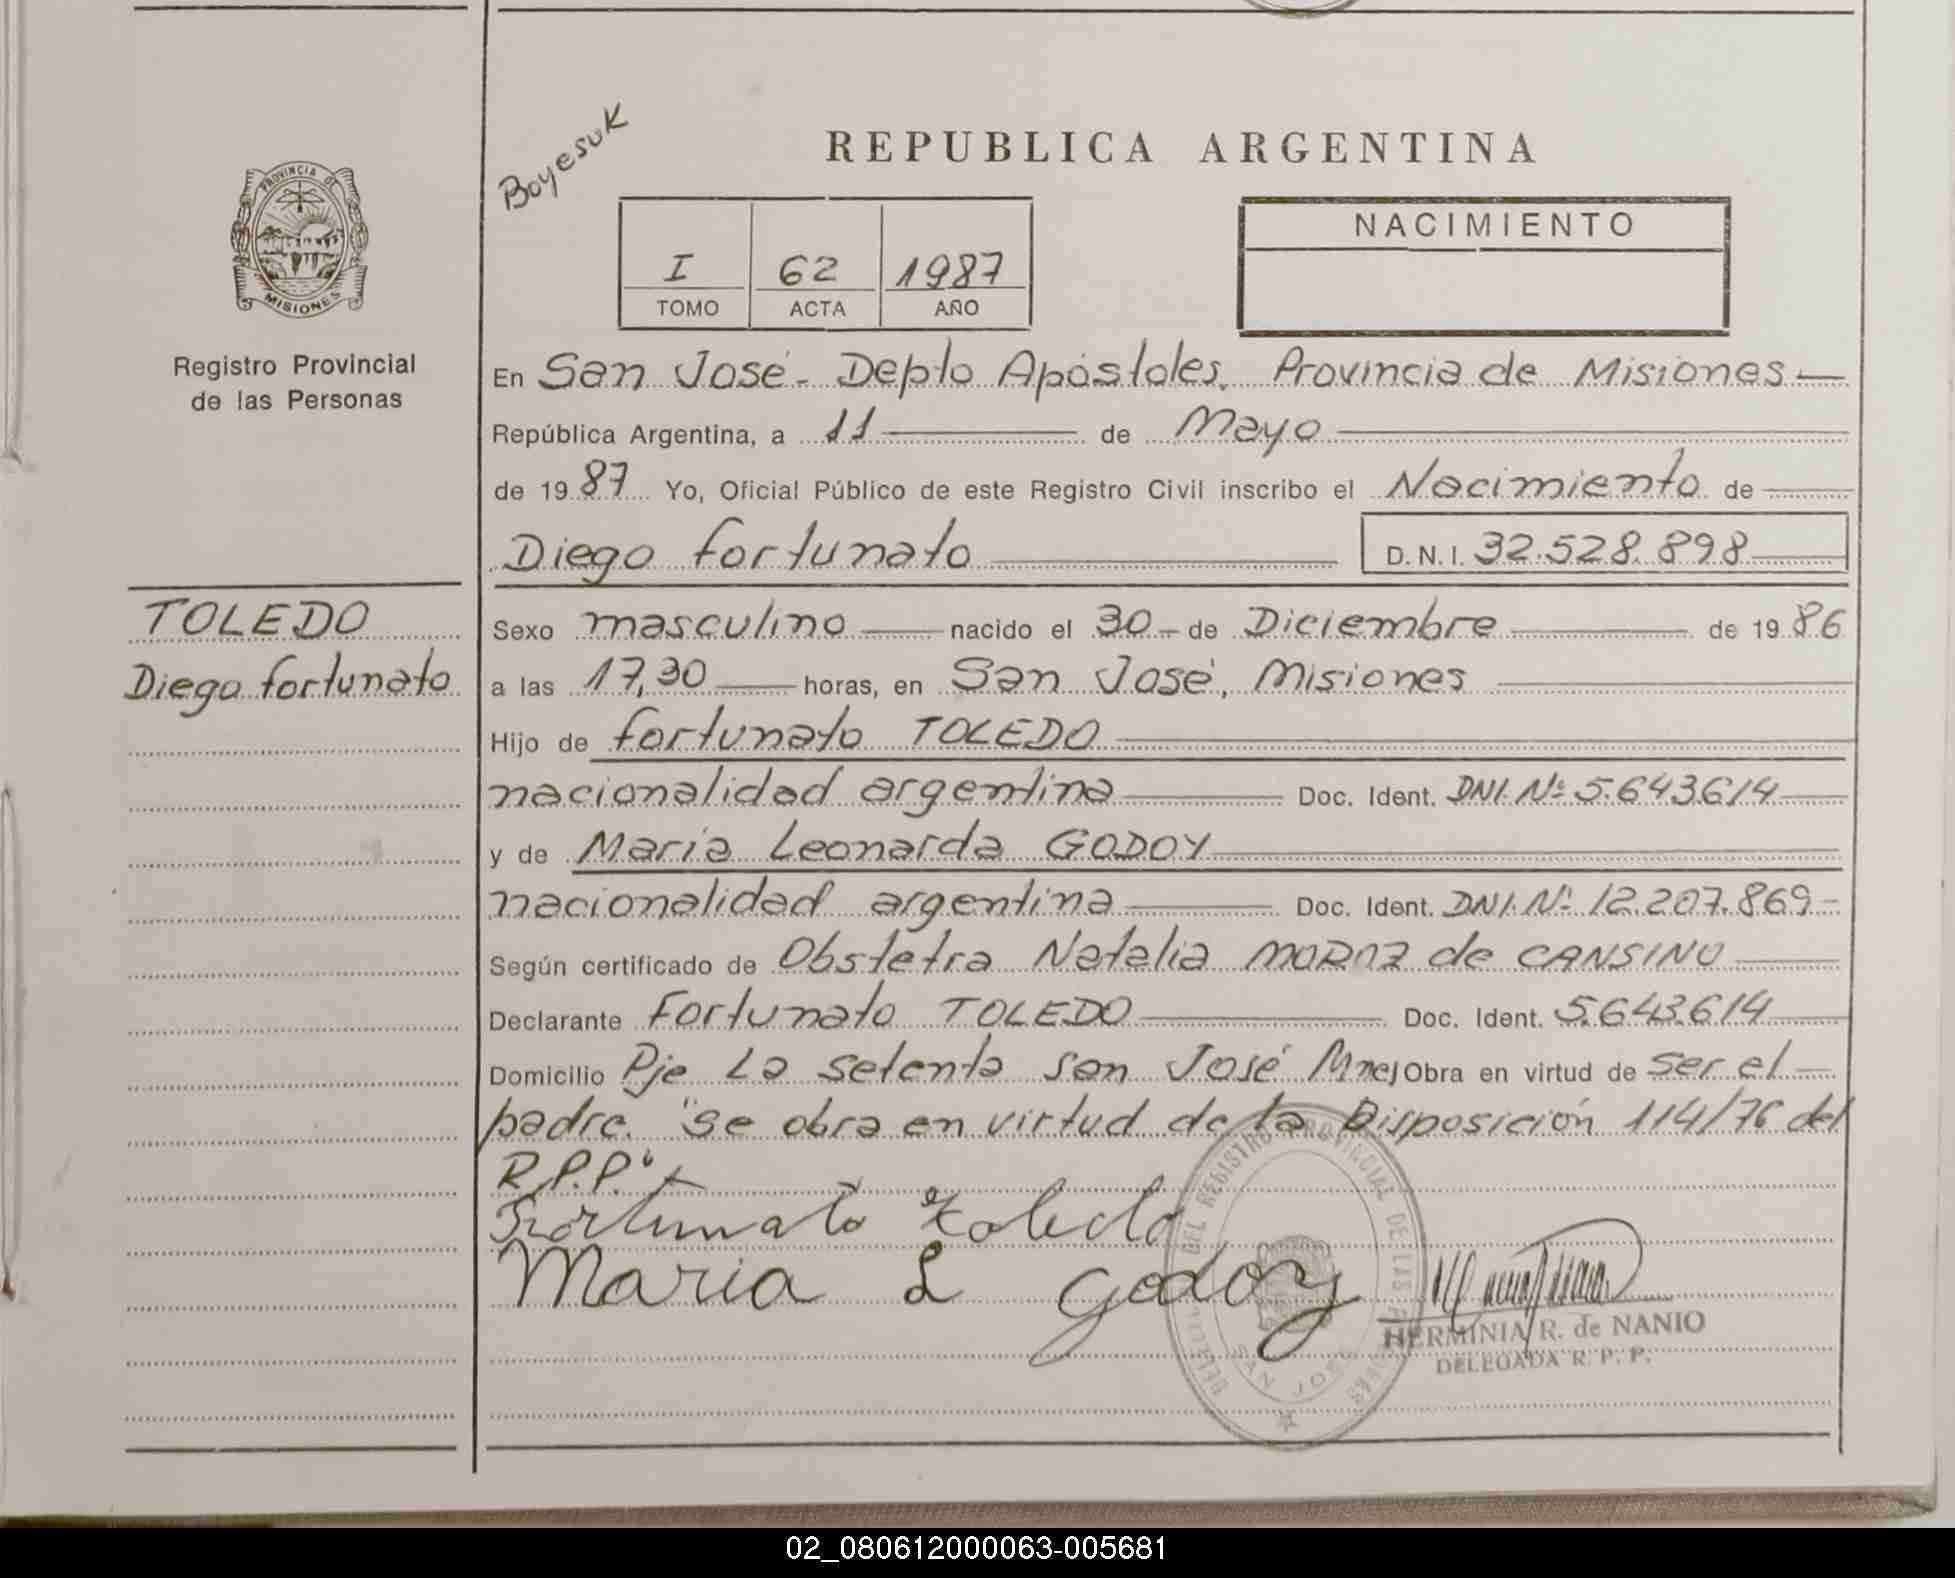 Boyesuk
REPUBLICA ARGENTINA
PROVINCIA DE
MISIONES
NACIMIENTO
I 62 1987
TOMO ACTA AÑO
Registro Provincial
de las Personas
En San José - Depto Apóstoles, Provincia de Misiones
República Argentina, a 11 de Mayo
de 1987 Yo, Oficial Público de este Registro Civil inscribo el Nacimiento de
Diego Fortunato D.N.I. 32.528.898
TOLEDO
Diego Fortunato
Sexo masculino nacido el 30 - de Diciembre de 1986
a las 17,30 horas, en San José, Misiones
Hijo de Fortunato TOLEDO
nacionalidad argentina Doc. Ident. DNI. Nº 5.643.614
y de María Leonarda GODOY
nacionalidad argentina Doc. Ident. DNI. Nº 12.207.869 -
Según certificado de Obstetra Natalia MOROZ de CANSINO
Declarante Fortunato TOLEDO Doc. Ident. 5.643.614
Domicilio Pje La setenta San José Mnes Obra en virtud de ser el
padre. "Se obra en virtud de la Disposición 114/76 del
R.P.P."
Fortunato Toledo
Maria L Godoy
DEL REGISTRO PROVINCIAL DE LAS
SAN JOSE
HERMINIA R. de NANIO
DELEGADA R. P. P.
02_080612000063-005681